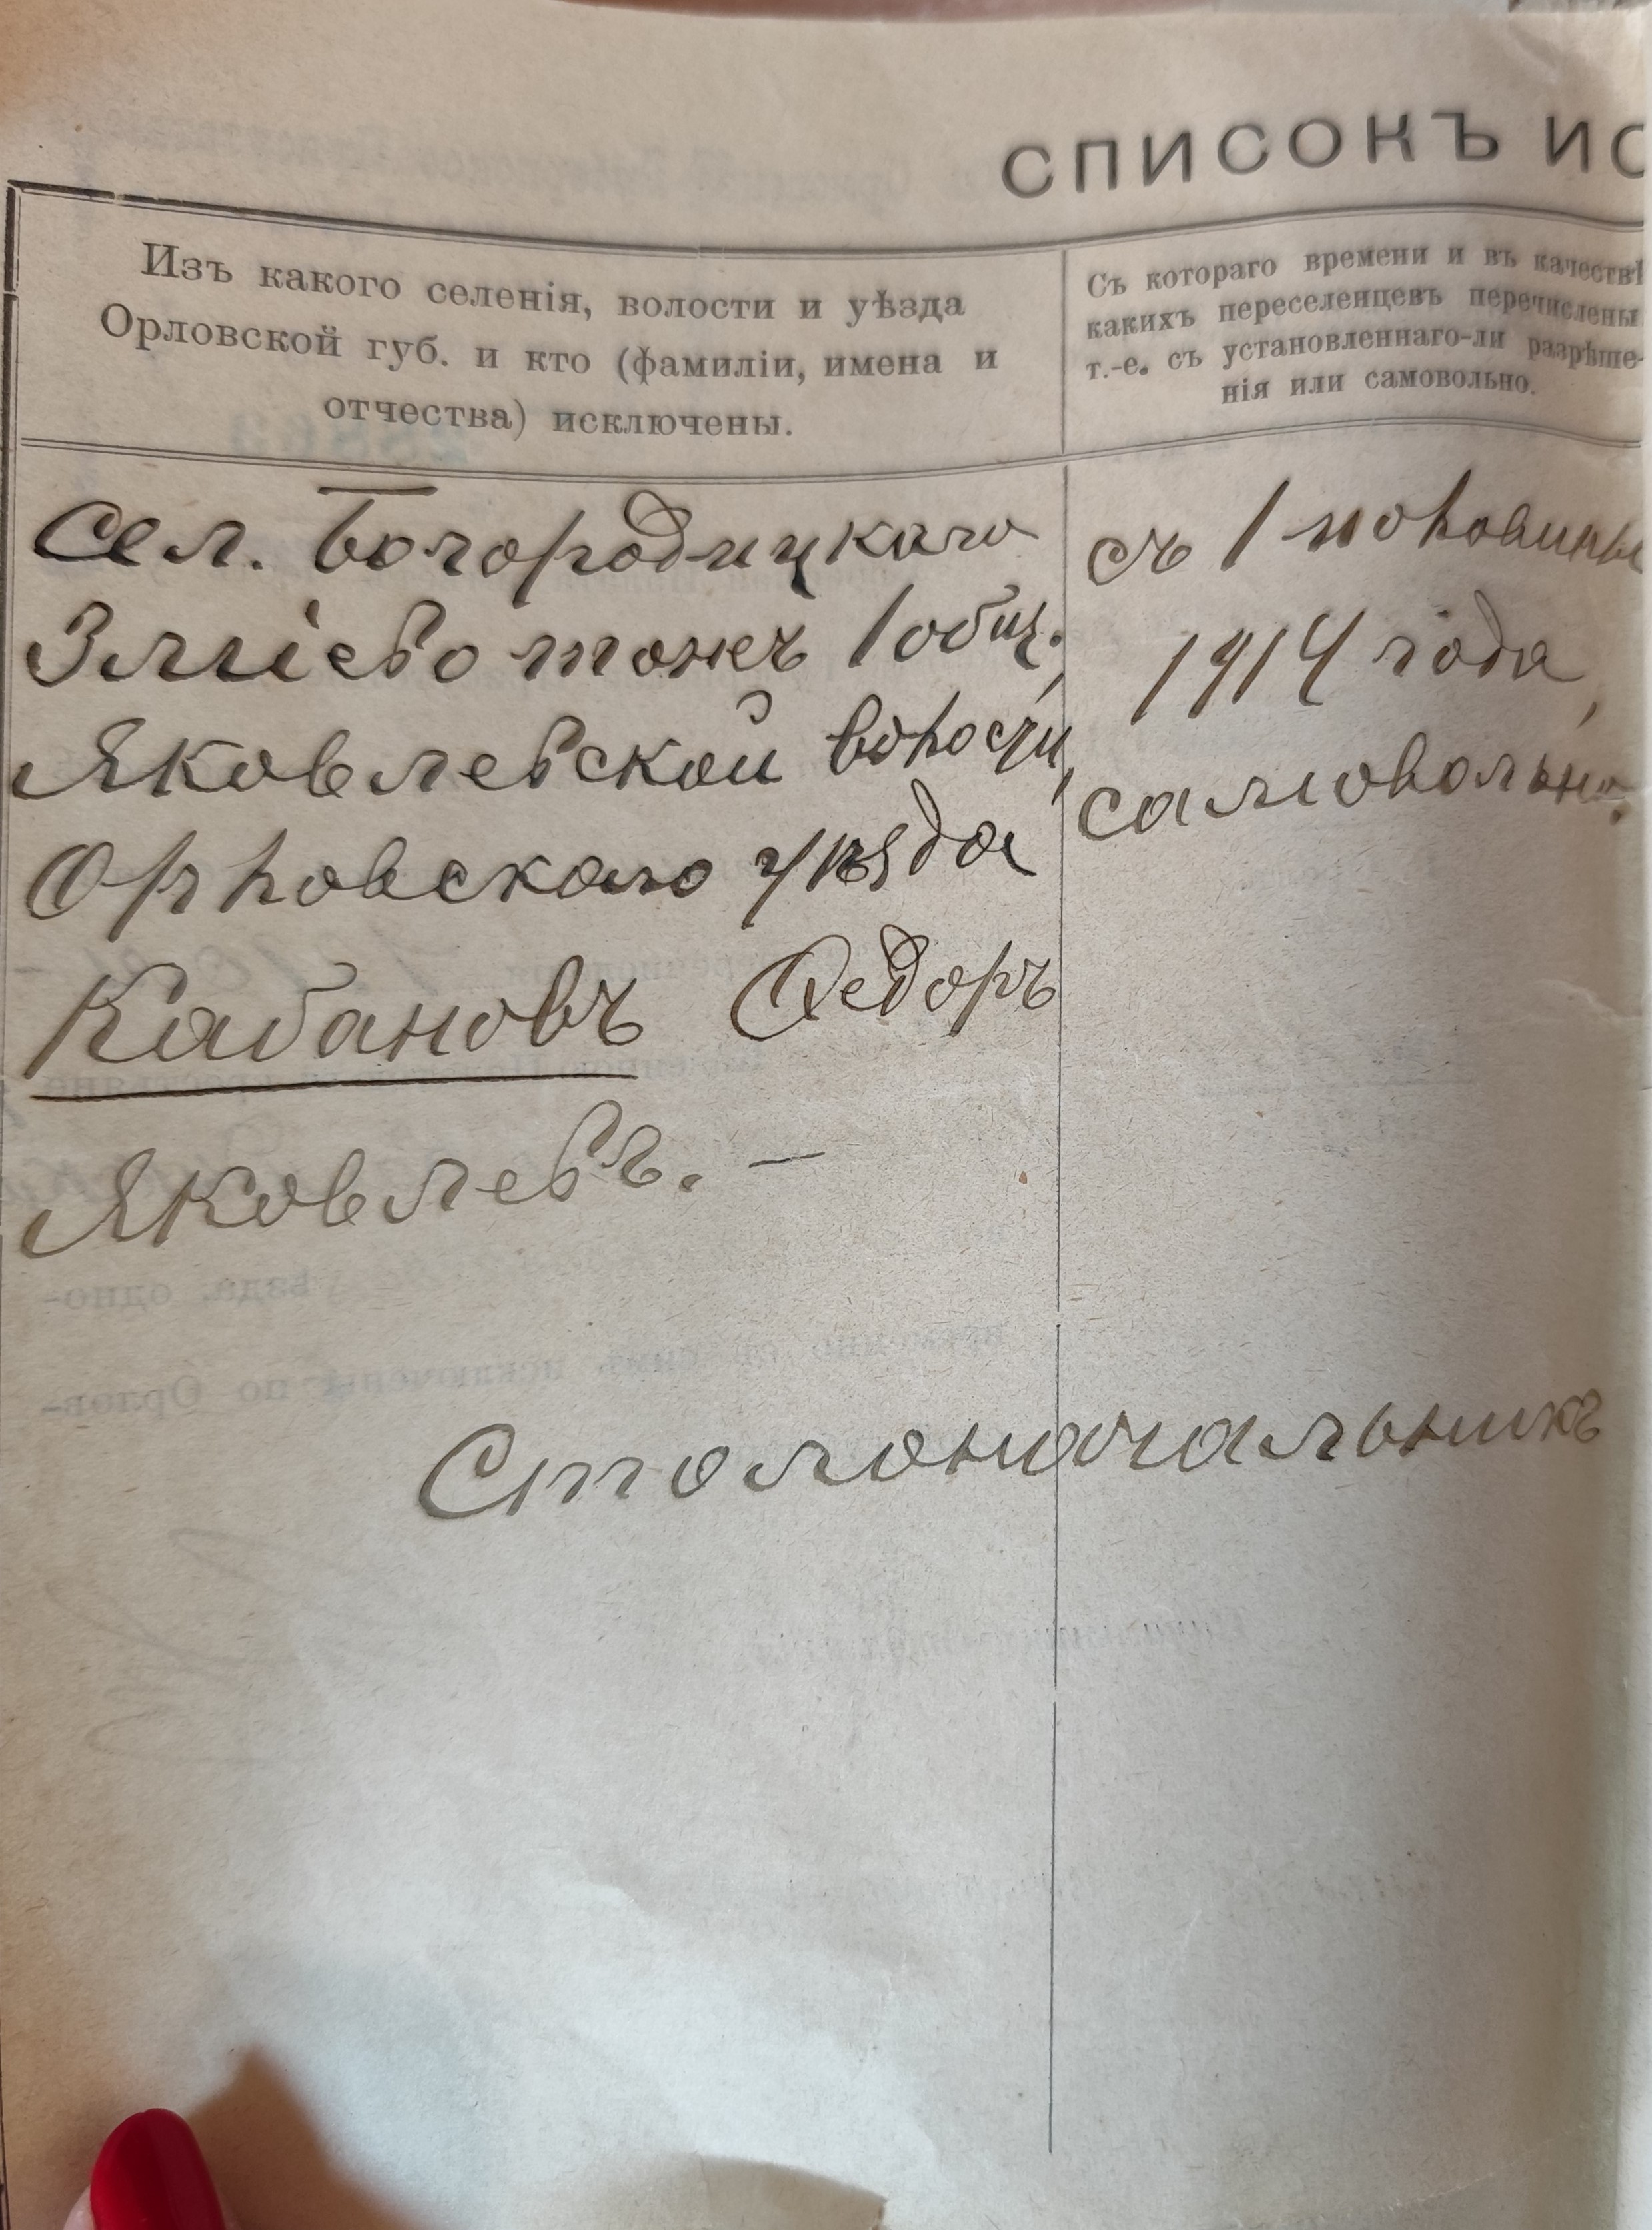 СПИСОКЪ ИС
Изъ какого селенія, волости и уѣзда
Орловской губ. и кто (фамиліи, имена и
отчества) исключены.
Съ котораго времени и въ качествѣ
какихъ переселенцевъ перечислены
т.-е. съ установленнаго-ли разрѣше-
нія или самовольно.
Сел. Богородицкаго
Зміево тожъ 1 общ.,
Яковлевской волости,
Орловскаго уѣзда
Кабановъ Ѳедоръ
Яковлевъ. —
съ 1 половины
1914 года,
самовольно.
Столоначальникъ